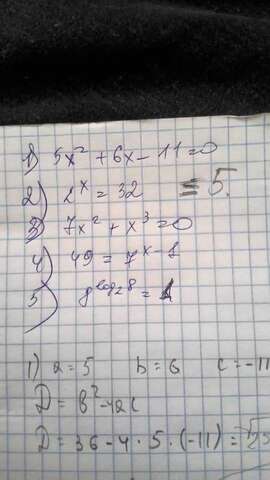 1) 5x² + 6x - 11 = 0
2) 2ˣ = 32 = 5.
3) 7x² + x³ = 0
4) 49 = 7ˣ⁻⁸
5) 8^log₂8 =
1) a = 5 b = 6 c = -11
D = b² - 4ac
D = 36 - 4 · 5 · (-11) =